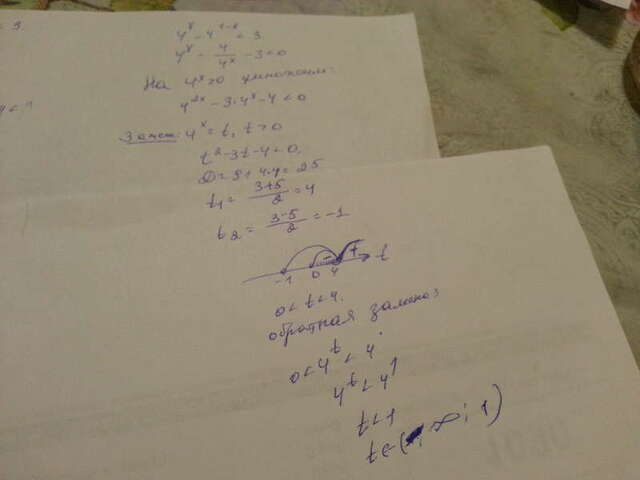 = 3
4^x - 4^{1-x} < 3
4^x - 4/4^x - 3 < 0
На 4^x > 0 умножаем:
4^{2x} - 3·4^x - 4 < 0
Замен: 4^x = t, t > 0
t² - 3t - 4 < 0
D = 9 + 4·4 = 25
t₁ = (3+5)/2 = 4
t₂ = (3-5)/2 = -1
- + t
-1 0 4
0 < t < 4.
обратная замена:
0 < 4^t < 4
4^t < 4^1
t < 1
t ∈ (-∞; 1)